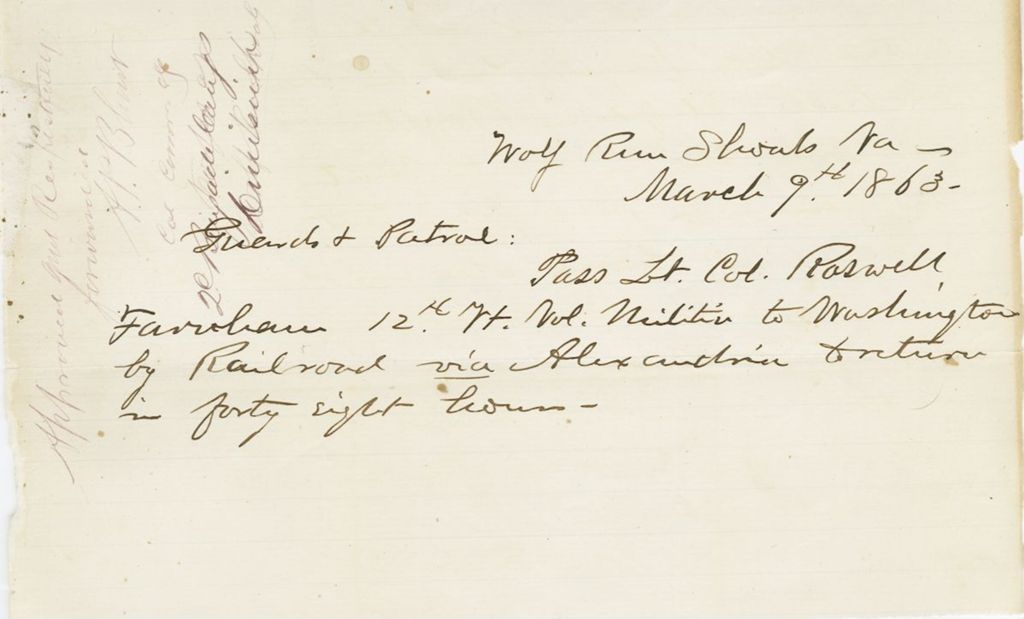 Wolf Run Shoals Va -
March 9th 1863-
Guards & Patrol:
Pass Lt. Col. Roswell
Farnham 12th Vt. Vol. Militia to Washington
by Railroad via Alexandria to return
in forty eight hours-
Approved & res
forwarded
A. P. Blunt
Col Comm'g
2d Brigade